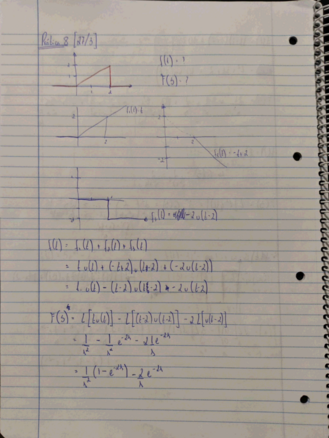 f(t) = ?
F(s) = ?
f₂(t) = -t+2
-2u(t-2)
f(t) = f₁(t) + f₂(t) + f₃(t)
= t u(t) + (-t+2) u(t-2) + (-2u(t-2))
= t u(t) - (t-2) u(t-2) - 2u(t-2)
F(s) = L[t u(t)] - L[(t-2)u(t-2)] - 2L[u(t-2)]
= 1/s² - 1/s² e^-2s - 2 1/s e^-2s
= 1/s² (1 - e^-2s) - 2/s e^-2s